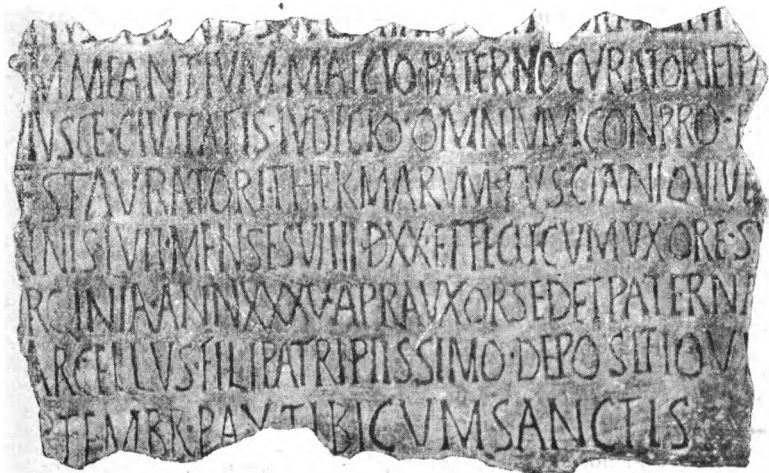 MMEANTIVM·MAECIO·PATERNO·CVRATORIETPA
VSCE·CIVITATIS·IVDICIO·OMNIVMCONPRO·
ESTAVRATORI·THERMARVM·TVSCIANIQVIVI
NNISLVII·MENSESVIIII·DXX·ETFECIT·CVMVXORE·S
RGINIA·ANNXXXV·APRAVXORSEDETPATERNI
ARCELLVS·FILIPATRIPIISSIMO·DEPOSITIOVI
PTEMBR·PAXTIBICVMSANCTIS